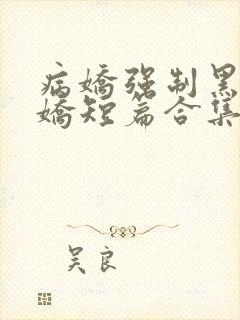 病嬌强制黑
嬌短篇合集
吴良